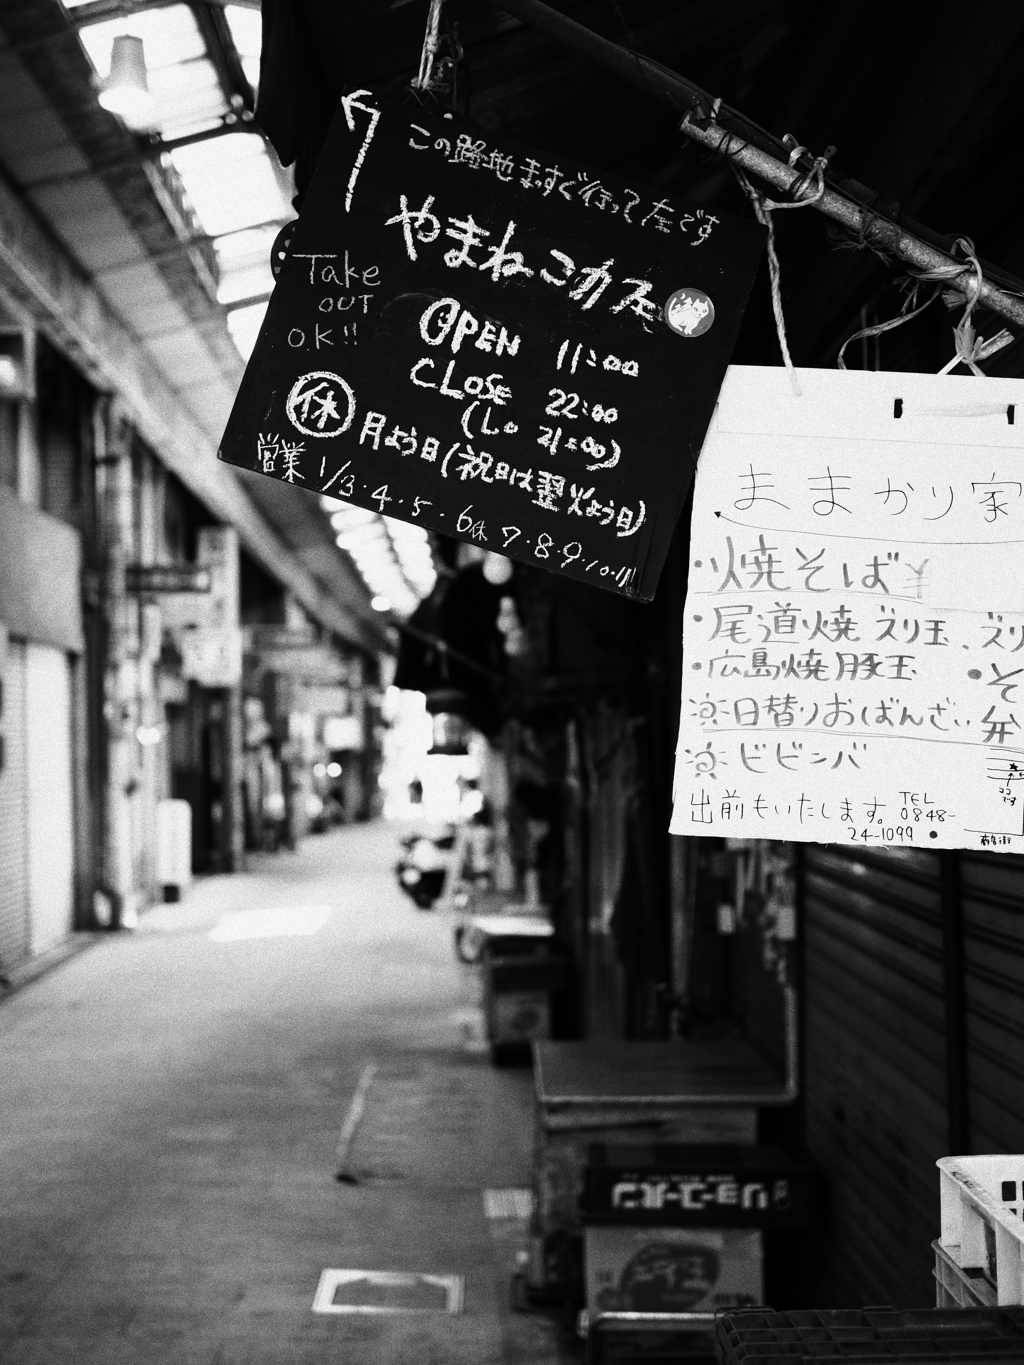 この路地まっすぐ行って左です
やまねこカフェ
Take
OUT
O.K!!
OPEN 11:00
CLOSE 22:00
(L.o 21:00)
休 月よう日(祝日は翌火よう日)
営業 1/3・4・5・6休 7・8・9・10・11
ままかり家
・焼そば¥
・尾道焼 ズリ玉、ズリ
・広島焼 豚玉
・そ
※日替りおばんざい
弁
※ビビンバ
出前もいたします。
TEL
0848-
24-1099
ココ
です
商店街
リョーユーパン